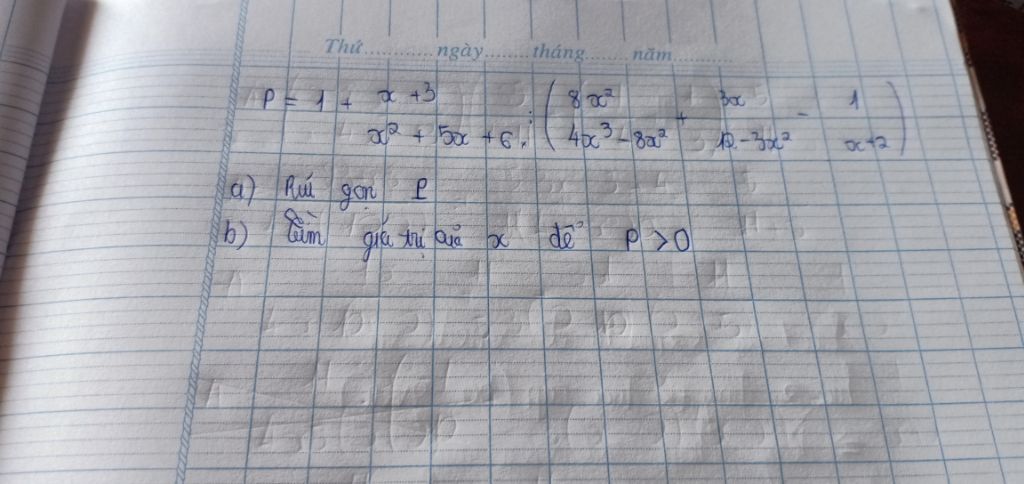 Thứ............ngày........tháng.......năm............
P = 1 + (x+3)/(x² + 5x + 6) : (8x²/(4x³ - 8x²) + 3x/(12 - 3x²) - 1/(x+2))
a) Rút gọn P
b) Tìm giá trị của x để P > 0